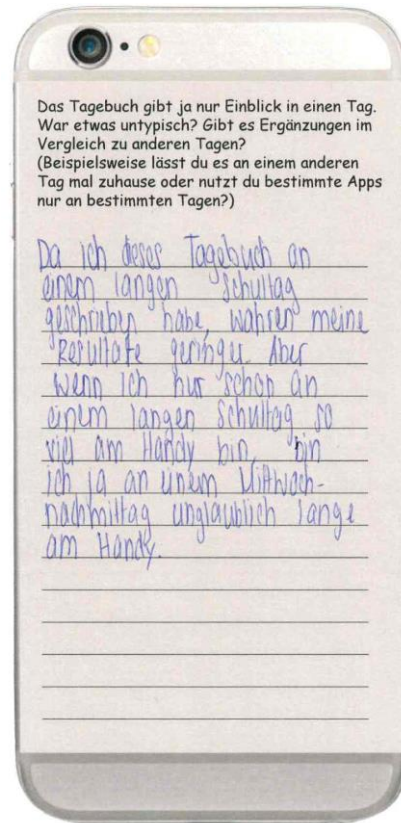 Das Tagebuch gibt ja nur Einblick in einen Tag.
War etwas untypisch? Gibt es Ergänzungen im
Vergleich zu anderen Tagen?
(Beispielsweise lässt du es an einem anderen
Tag mal zuhause oder nutzt du bestimmte Apps
nur an bestimmten Tagen?)
Da ich dieses Tagebuch an
einem langen Schultag
geschrieben habe, wahren meine
Resultate geringer. Aber
wenn ich nur schon an
einem langen Schultag so
viel am Handy bin, bin
ich ja an einem Mittwoch-
nachmittag unglaublich lange
am Handy.